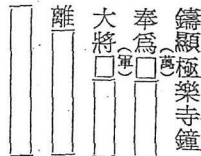 鑄顯極樂寺鐘
奉爲(萬)□
大將(軍)□
離